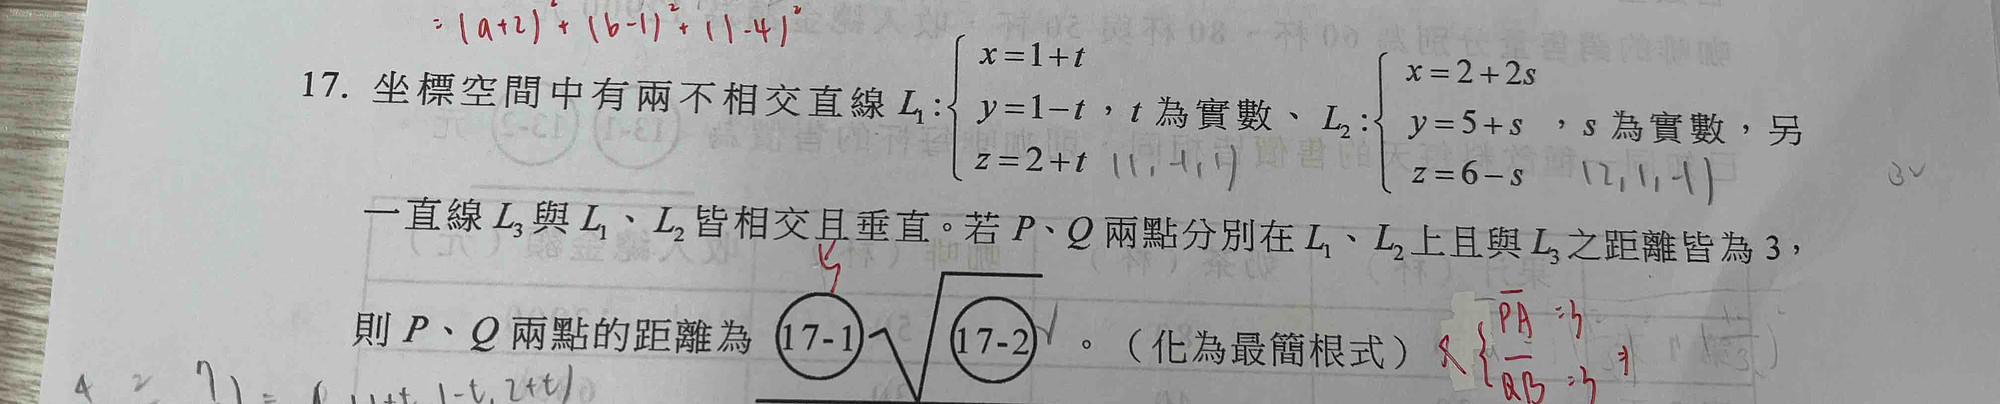 =(a+2)²+(b-1)²+(1-4)²
17. 坐標空間中有兩不相交直線 L₁:{x=1+t, y=1−t, z=2+t，t 為實數、L₂:{x=2+2s, y=5+s, z=6−s，s 為實數，另
(1,-1,1) (2,1,-1)
一直線 L₃ 與 L₁、L₂ 皆相交且垂直。若 P、Q 兩點分別在 L₁、L₂ 上且與 L₃ 之距離皆為 3，
則 P、Q 兩點的距離為 (17-1)√(17-2)。（化為最簡根式）
PA=3
QB=3
1-t, 2+t)